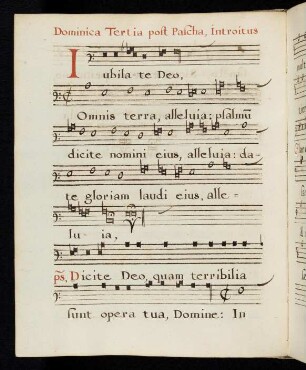 Dominica Tertia post Pascha, Introitus
Iubila te Deo,
Omnis terra, alleluia: psalmũ
dicite nomini eius, alleluia: da-
te gloriam laudi eius, alle=
lu- ia,
ps. Dicite Deo, quam terribilia
sunt opera tua, Domine: In